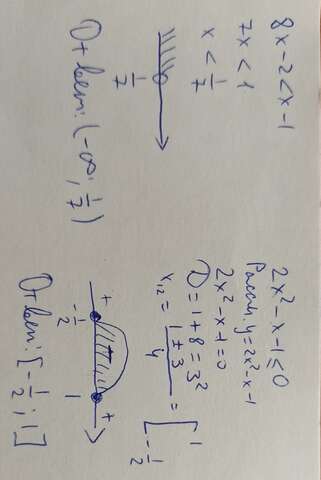 8x - 2 < x - 1
7x < 1
x < 1/7
1/7
Ответ: (-∞; 1/7)
2x² - x - 1 ≤ 0
Рассм. y = 2x² - x - 1
2x² - x - 1 = 0
D = 1 + 8 = 3²
x₁₂ = (1 ± 3)/4 = [ 1
-1/2
+ - +
-1/2 1
Ответ: [-1/2; 1]